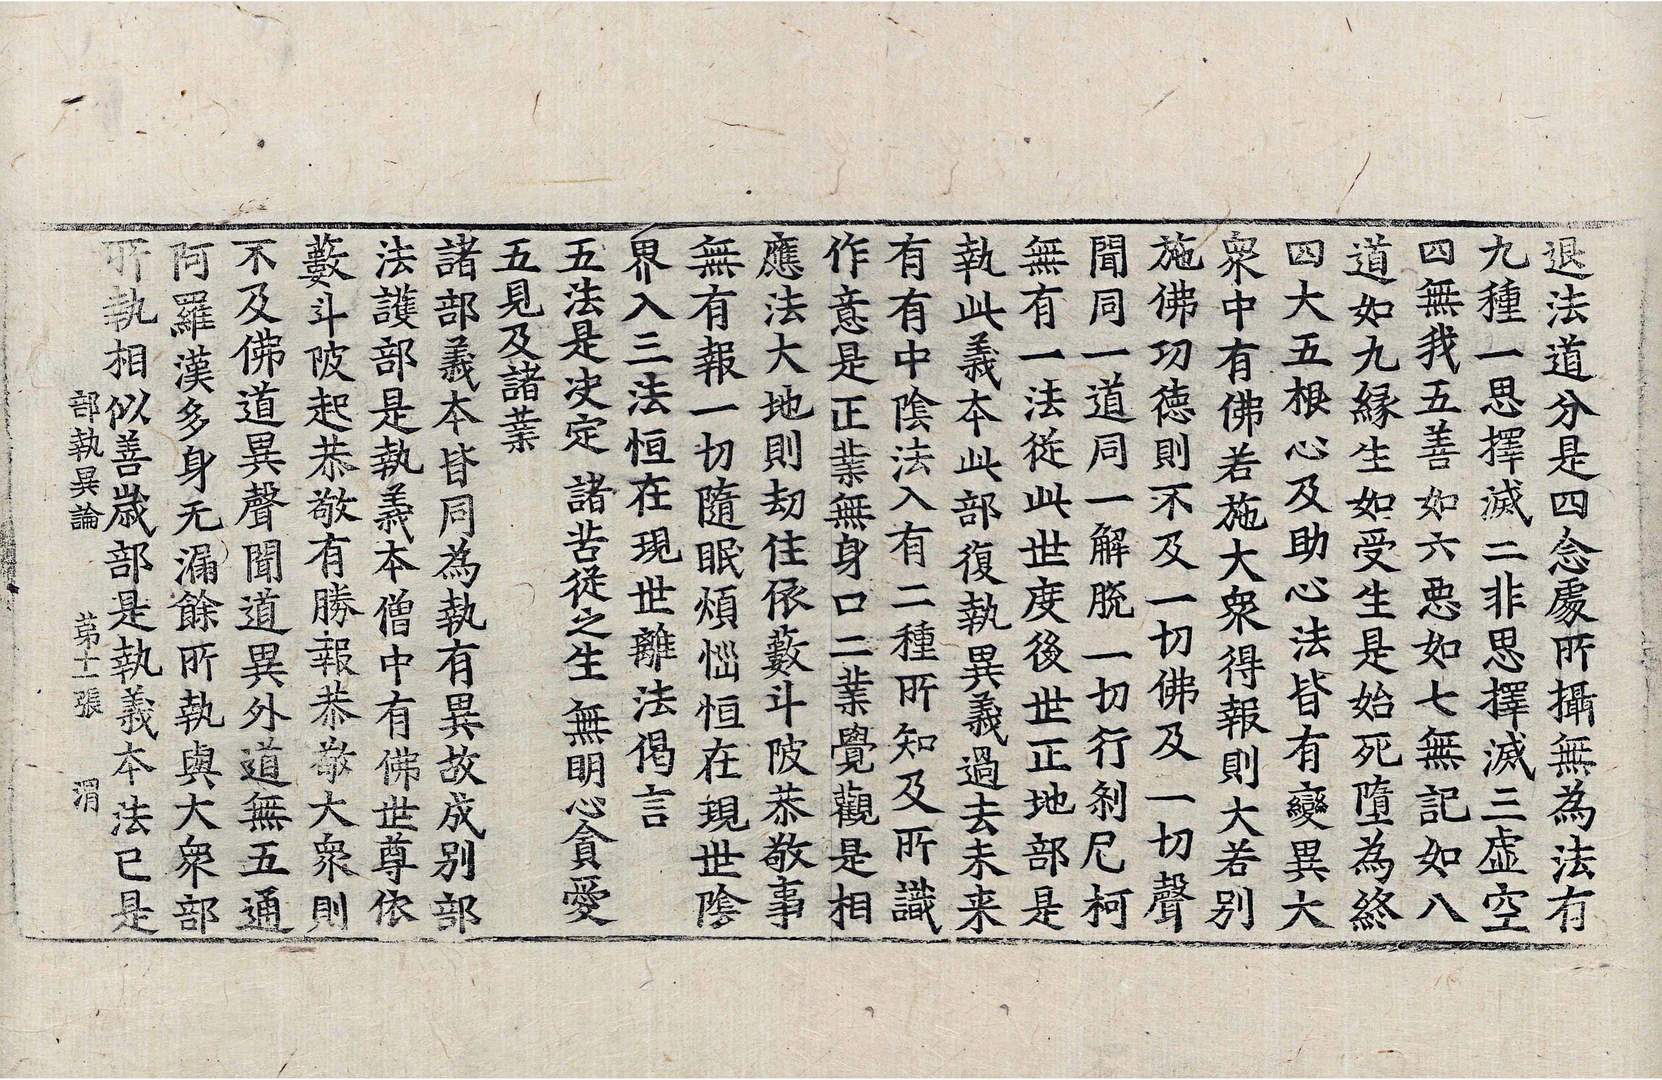 退法道分是四念處所攝無為法有
九種一思擇滅二非思擇滅三虛空
四無我五善如六惡如七無記如八
道如九緣生如受生是始死墮為終
四大五根心及助心法皆有變異大
衆中有佛若施大衆得報則大若別
施佛功德則不及一切佛及一切聲
聞同一道同一解脫一切行刹尼柯
無有一法從此世度後世正地部是
執此義本此部復執異義過去未来
有有中陰法入有二種所知及所識
作意是正業無身口二業覺觀是相
應法大地則劫住依藪斗陂恭敬事
無有報一切隨眠煩惱恒在現世陰
界入三法恒在現世離法偈言
五法是決定 諸苦從之生 無明心貪愛
五見及諸業
諸部義本皆同為執有異故成別部
法護部是執義本僧中有佛世尊依
藪斗陂起恭敬有勝報恭敬大衆則
不及佛道異聲聞道異外道無五通
阿羅漢多身无漏餘所執與大衆部
所執相似善歲部是執義本法已是
部執異論 苐十一張 渭